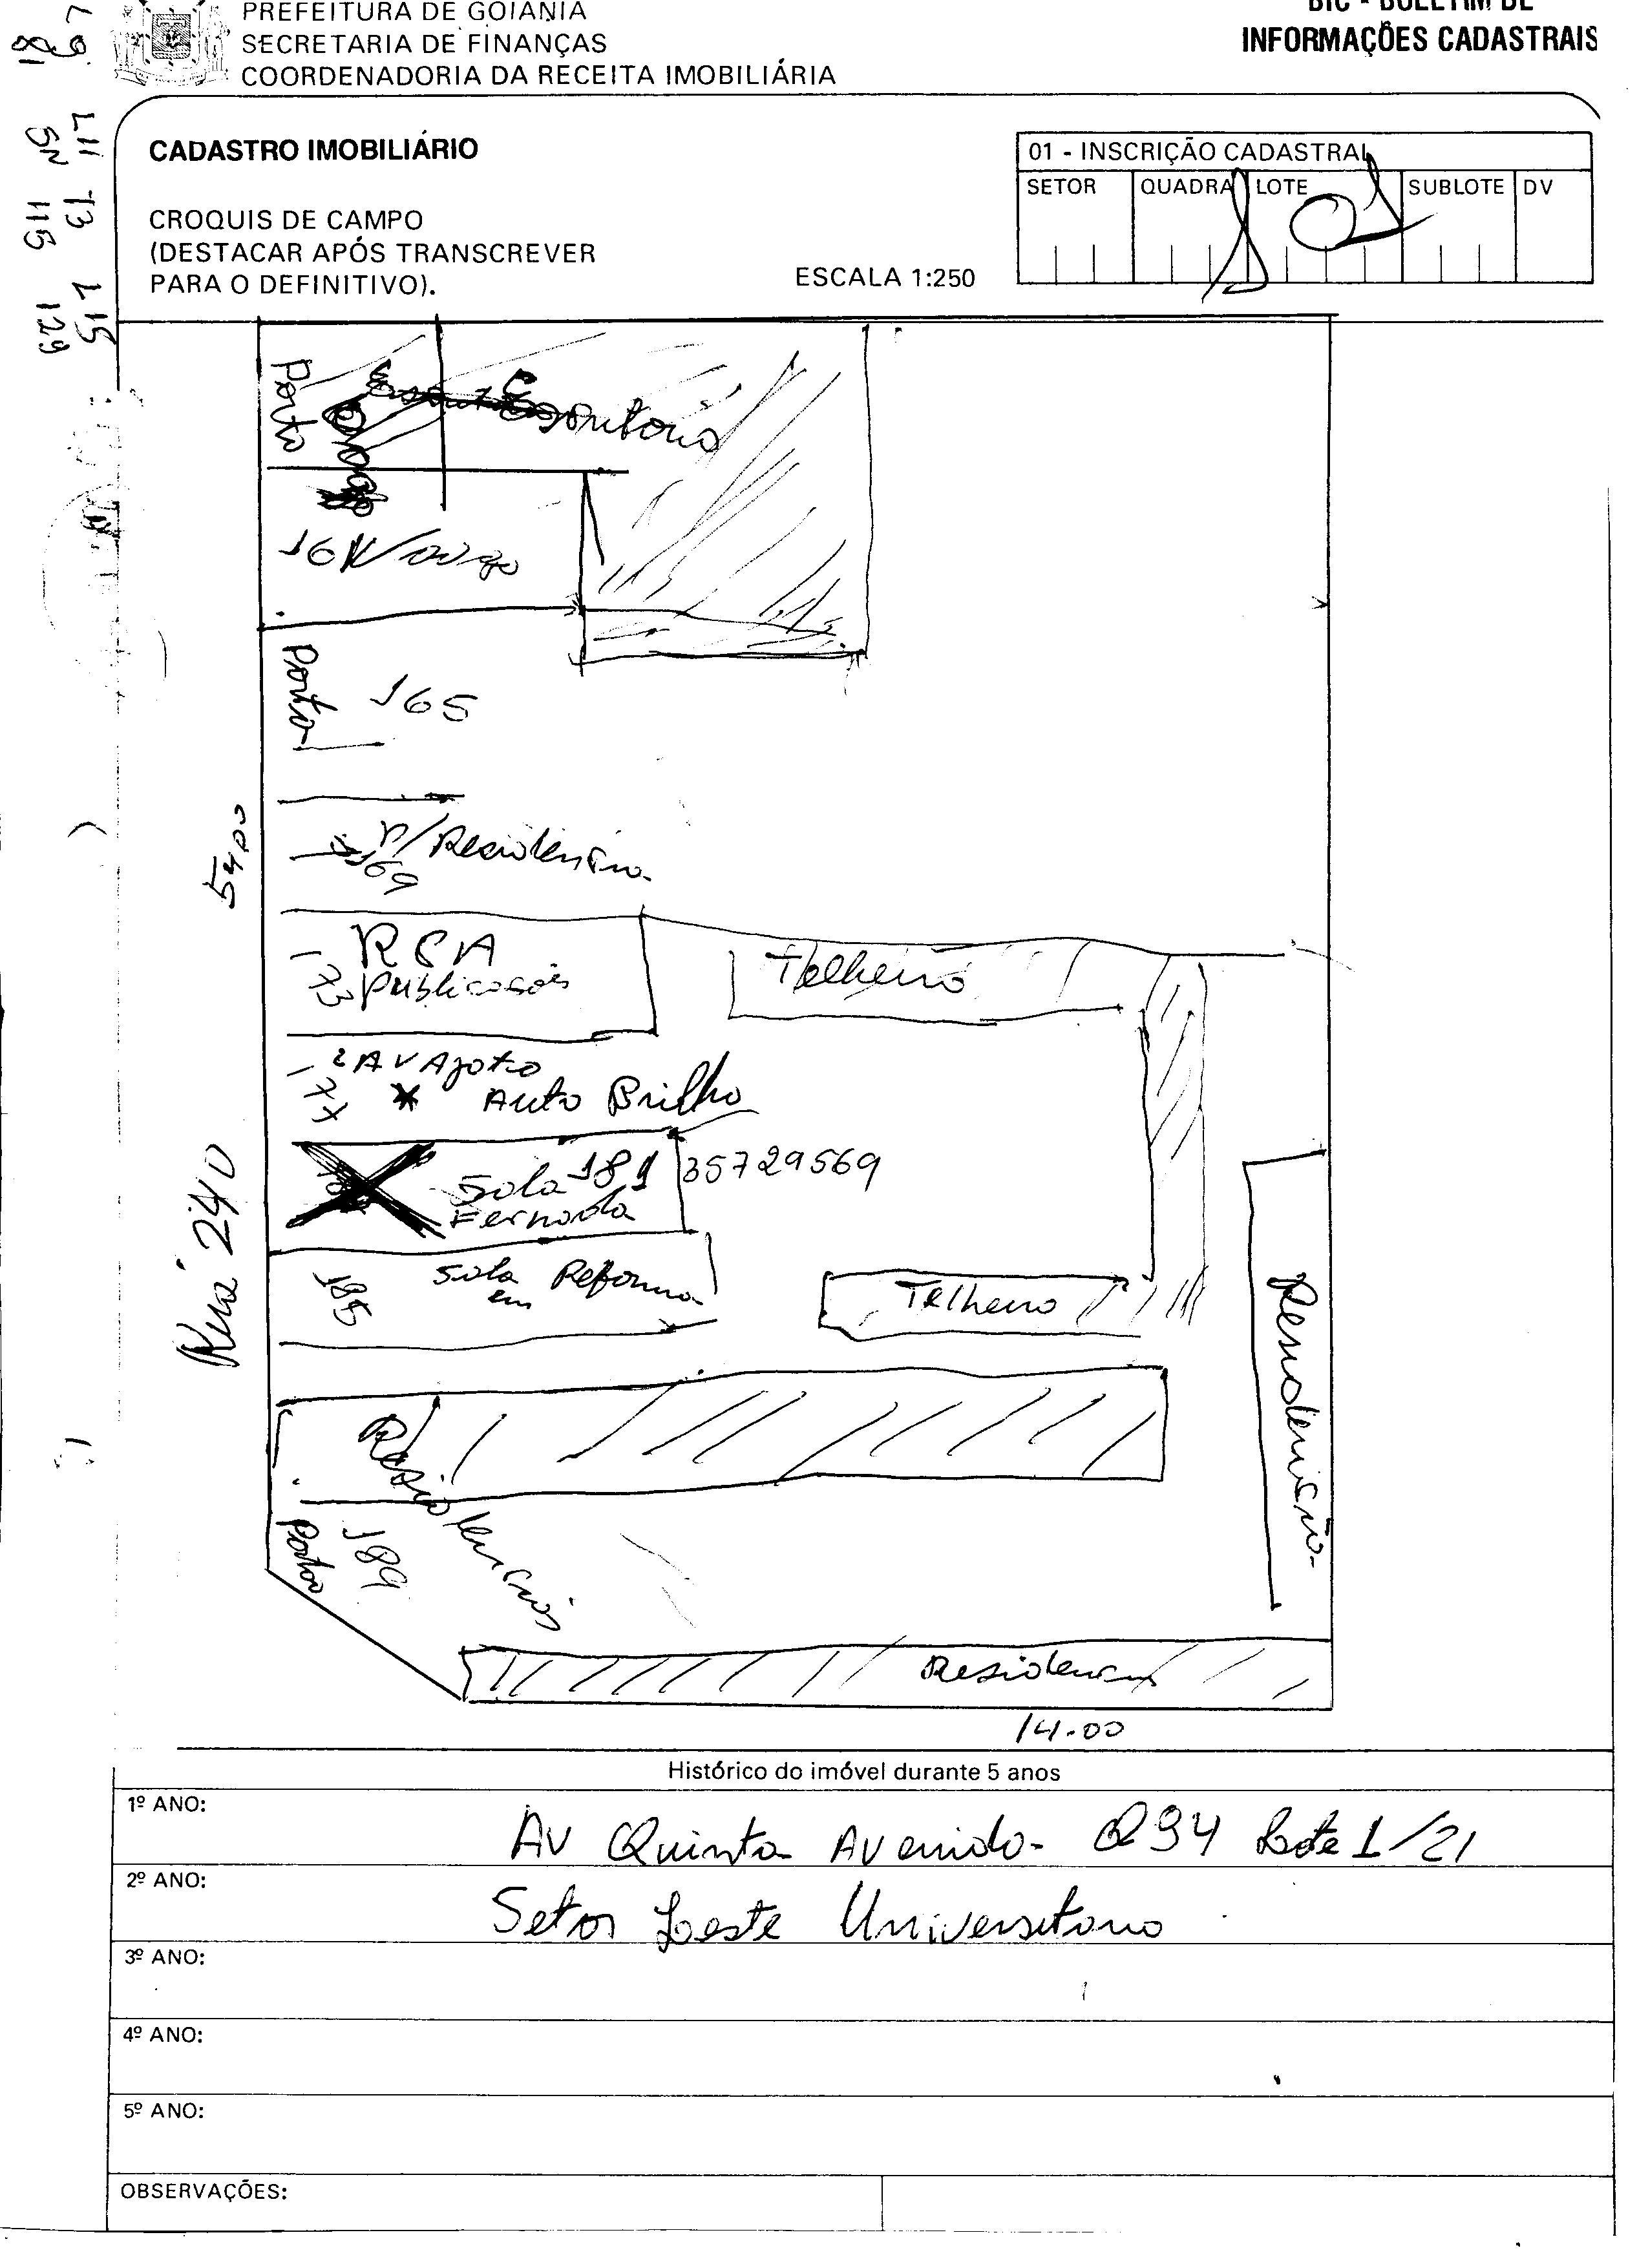 PREFEITURA DE GOIÂNIA
SECRETARIA DE FINANÇAS
COORDENADORIA DA RECEITA IMOBILIÁRIA
BIC - BOLETIM DE
INFORMAÇÕES CADASTRAIS
L9
81
L11 T3 L15
SN 115 129
CADASTRO IMOBILIÁRIO
CROQUIS DE CAMPO
(DESTACAR APÓS TRANSCREVER
PARA O DEFINITIVO).
ESCALA 1:250
01 - INSCRIÇÃO CADASTRAL
SETOR QUADRA LOTE SUBLOTE DV
Porta
Escritorio
Portão
165
54,00
p/ Residencia
169
RCA
Publicações
173
Telheiro
LAVAJATO
177
Auto Brilho
Sala 181 35729569
Fernanda
Rua 240
185
Sala em Reforma
Telheiro
Residencia
Residencias
189
Portão
Residencia
14.00
Histórico do imóvel durante 5 anos
1º ANO: Av Quinta Avenida Q 94 Lote 1/21
2º ANO: Setor Leste Universitario
3º ANO:
4º ANO:
5º ANO:
OBSERVAÇÕES: